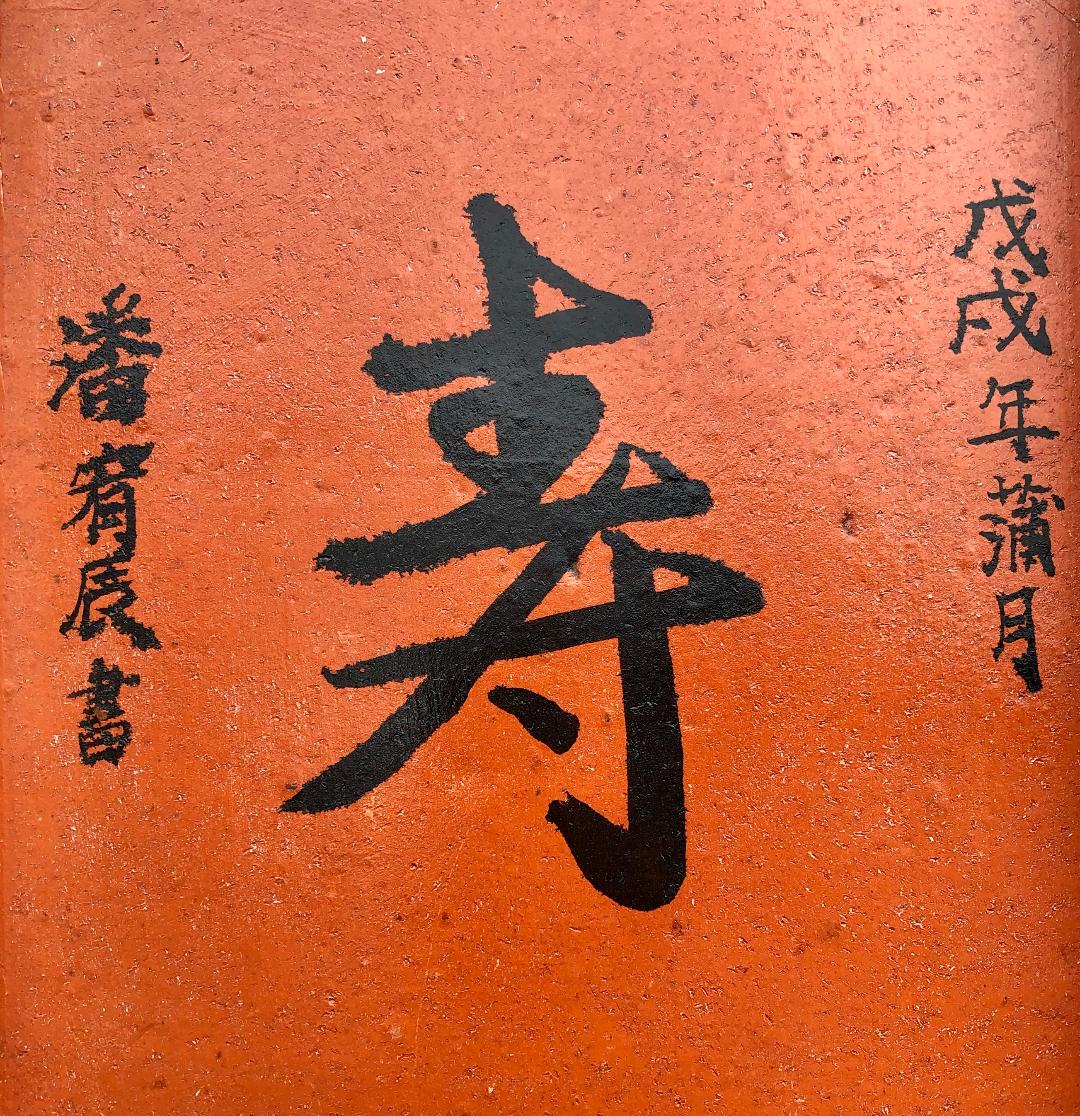 戊戌年蒲月
寿
潘宥辰書